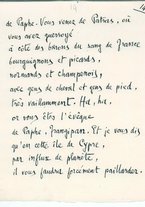 de Paphe. Vous venez de Patras, où
vous avez guerroyé
à côté des barons du sang de France
bourguignons et picards,
normands et champenois,
avec gens de cheval et gens de pied,
très vaillamment. Ha, ha,
or vous êtes l'évêque
de Paphe, Frangipani. Et je vous dis
qu'en cette île de Cypre,
par influx de planète,
il vous faudra forcément paillarder.